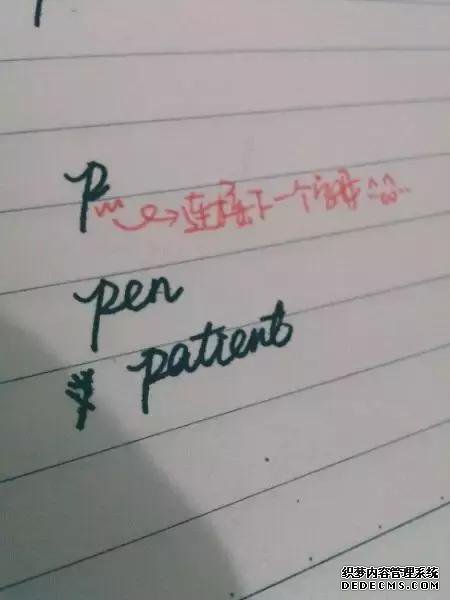 p 连接下一个字母
pen
patient
织梦内容管理系统
DEDECMS.COM